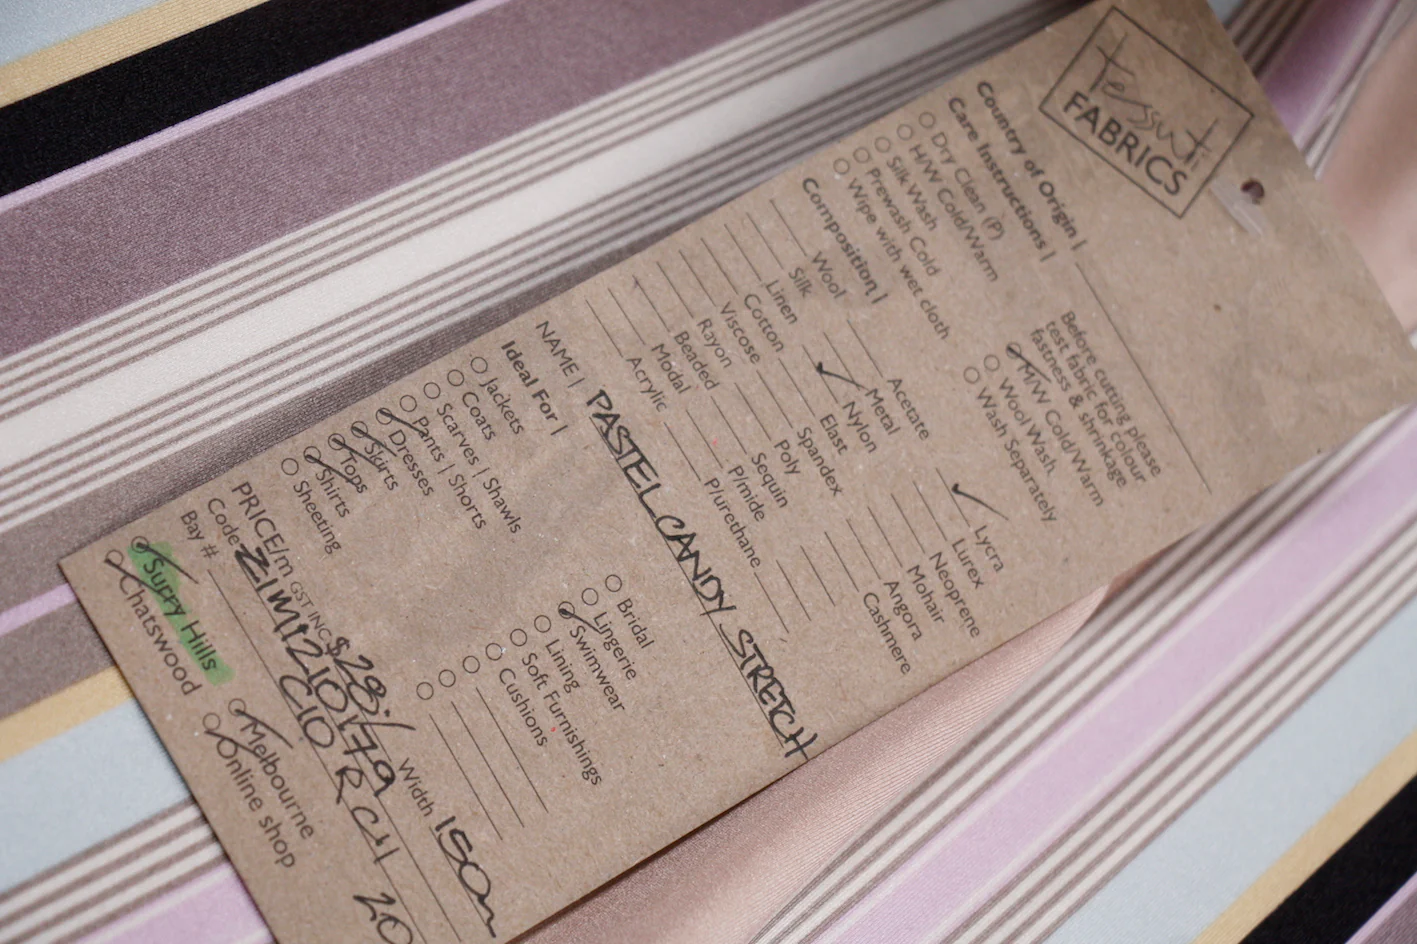 Tessuti
FABRICS
Country of Origin |
Care Instructions |
Dry Clean (P)
H/W Cold/Warm
Silk Wash
Prewash Cold
Wipe with wet cloth
Before cutting please
test fabric for colour
fastness & shrinkage
M/W Cold/Warm
Wool Wash
Wash Separately
Composition |
Wool
Silk
Linen
Cotton
Viscose
Rayon
Beaded
Modal
Acrylic
Acetate
Metal
Nylon
Elast
Spandex
Poly
Sequin
P/mide
P/urethane
Lycra
Lurex
Neoprene
Mohair
Angora
Cashmere
NAME | PASTEL CANDY STRETCH
Ideal For |
Jackets
Coats
Scarves | Shawls
Pants | Shorts
Dresses
Skirts
Tops
Shirts
Sheeting
Bridal
Lingerie
Swimwear
Lining
Soft Furnishings
Cushions
PRICE/m GST INC $28./ Width 150m
Code
Bay # C10
Surry Hills
Chatswood
Melbourne
Online shop